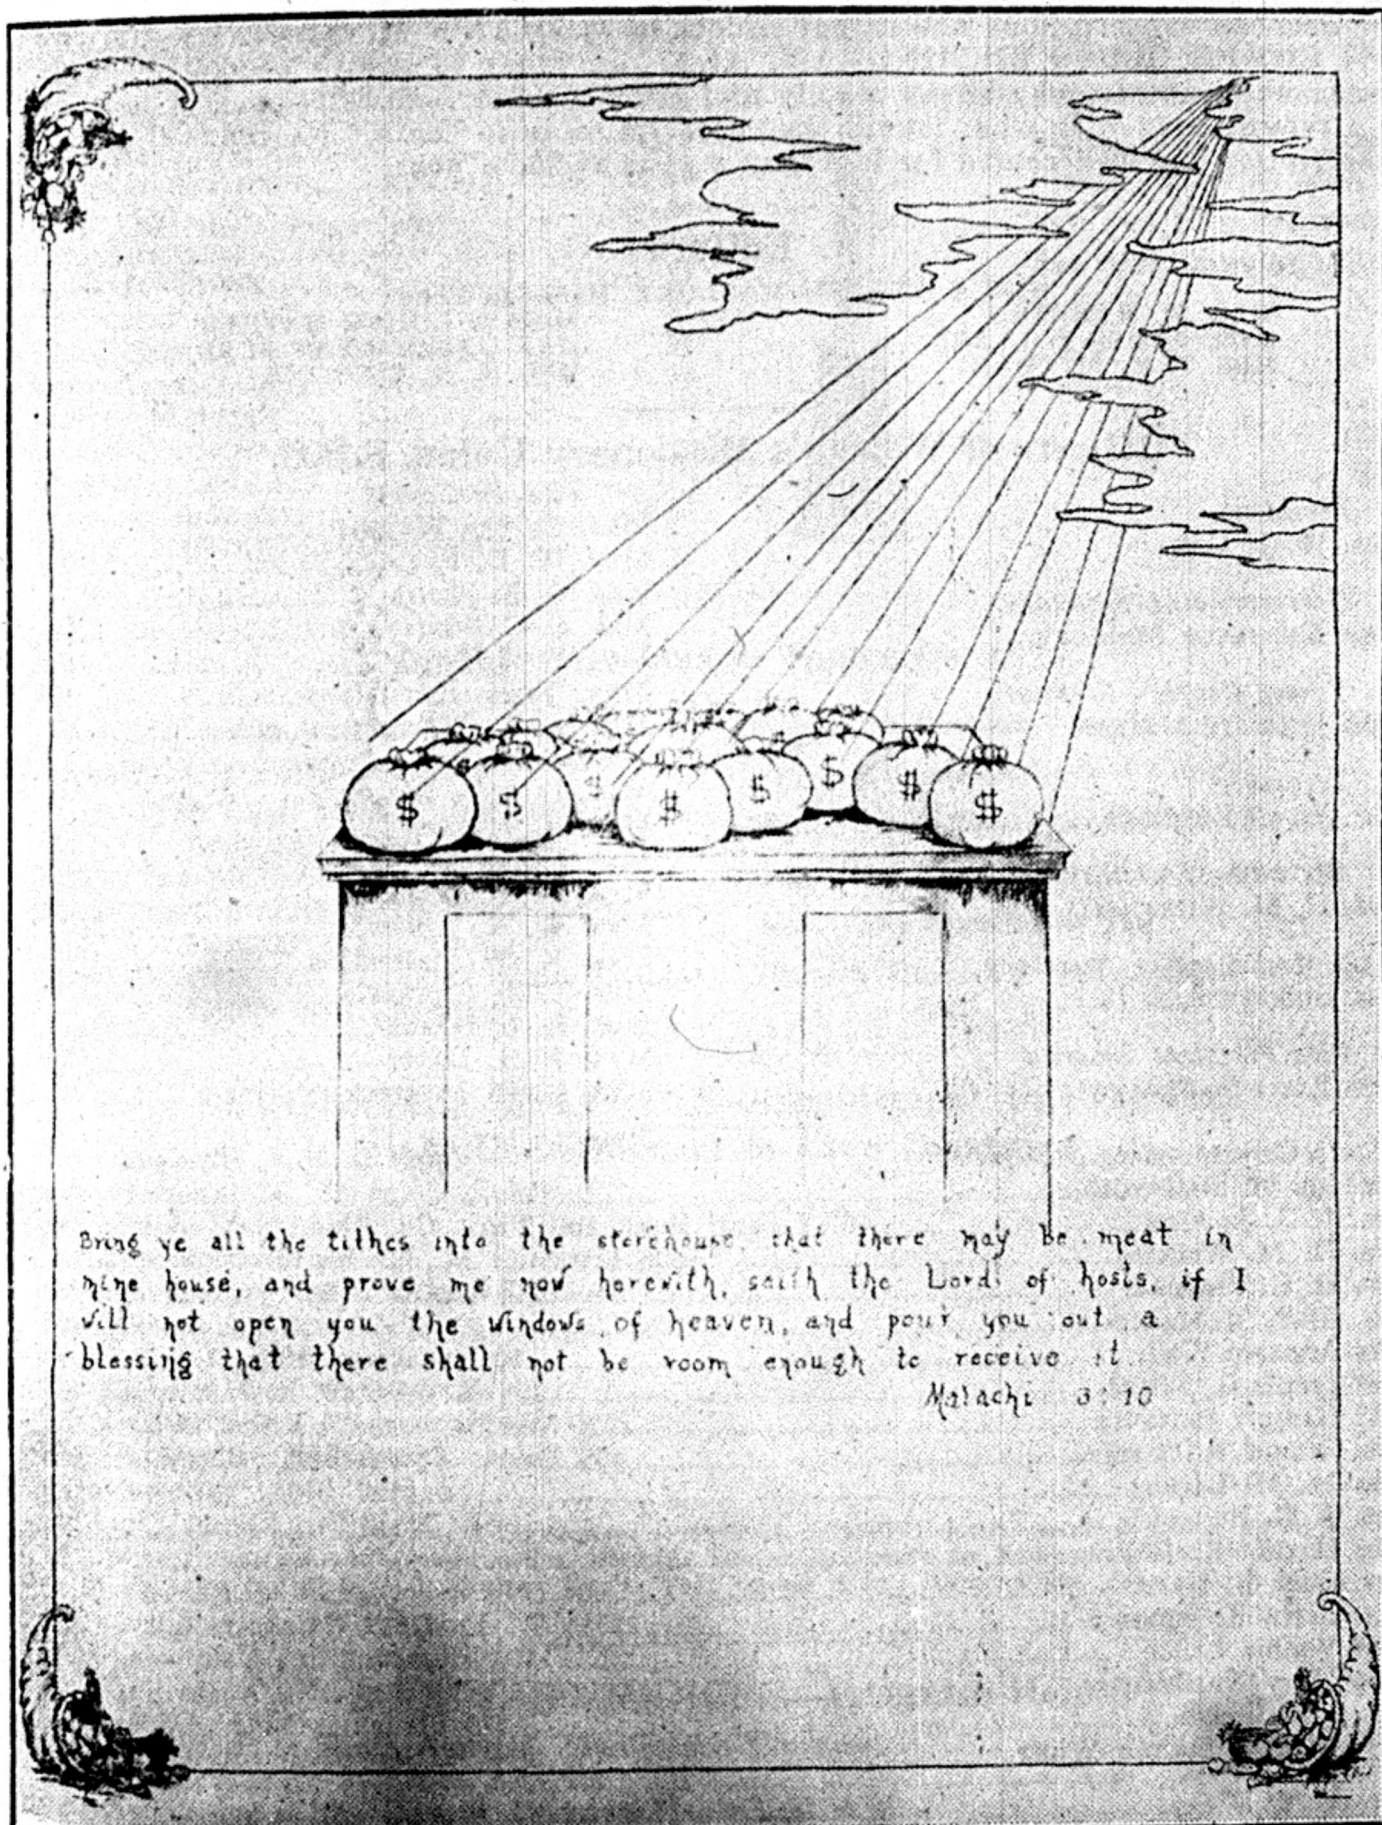 $ $ $ $ $ $ $ $
Bring ye all the tithes into the storehouse, that there may be meat in
mine house, and prove me now herewith, saith the Lord of hosts, if I
will not open you the windows of heaven, and pour you out a
blessing that there shall not be room enough to receive it
Malachi 3:10